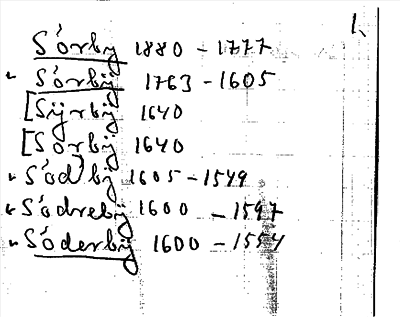 1.
Sörby 1880 - 1777
" Sörbÿ 1763 - 1605
[Sÿrbÿ 1640
[Sorbÿ 1640
" Söd)bÿ 1605 - 1549
" Södrebÿ 1600 - 1597
" Söderbÿ 1600 - 1554